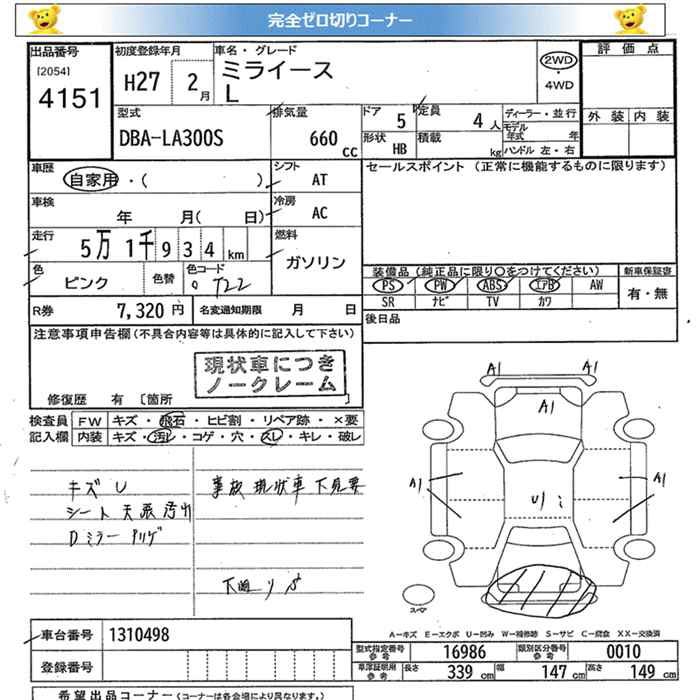 完全ゼロ切りコーナー
出品番号 初度登録年月 車名・グレード 評価点
[2054] ミライース 2WD
4151 H27 2月 L ・ 4WD
外装 内装
型式 排気量 ドア 5 定員 4人 ディーラー・並行
DBA-LA300S 660cc 形状 HB 積載 kg モデル年式 年
ハンドル 左・右
車歴 自家用・( ) シフト AT セールスポイント (正常に機能するものに限ります)
車検 年 月( 日) 冷房 AC
走行 5万1千934km 燃料 ガソリン
色 ピンク 色替 色コード T22 装備品 (純正品に限り○をつけてください) 新車保証書
PS PW ABS エアB AW 有・無
SR ナビ TV カワ
R券 7,320円 名変通知期限 月 日 後日品
注意事項申告欄 (不具合内容等は具体的に記入して下さい)
現状車につき
ノークレーム
修復歴 有 〔箇所 〕
検査員 FW キズ・飛石・ヒビ割・リペア跡・×要
記入欄 内装 キズ・汚レ・コゲ・穴・スレ・キレ・破レ
キズU 事故現状車下見要
シート天張汚れ
Dミラー
A1 A1
A1
A1 A1
U
スペア
A-キズ E-エクボ U-凹み W-補修跡 S-サビ C-腐食 XX-交換済
車台番号 1310498
型式指定番号 参考 16986 類別区分番号 参考 0010
登録番号 車庫証明用 参考 長さ 339cm 幅 147cm 高さ 149cm
希望出品コーナー (コーナーは各会場により異なります。)